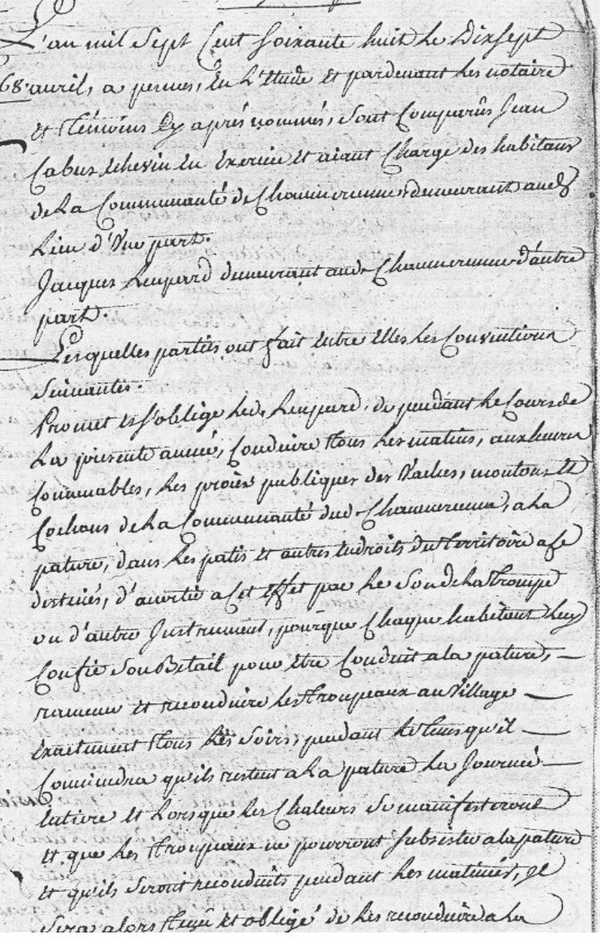 L'an mil Sept Cent Soixante huit le Dixsept
68. avril, a pernes, En L'Etude et pardevant Les notaire
et temoins Cy aprés nommés, sont Comparus Jean
Cabus Echevin En Exercice et aiant Charge des habitans
de La Communauté de demeurant aud.
Lieu d'Une part.
Jacques Leupard demeurant aud. d'autre
part.
Lesquelles parties ont fait Entre Elles Les Conventions
Suivantes.
Promet et s'oblige Led. Leupard, de pendant Le Cours de
La presente année, Conduire tous Les matins, aux heures
Convenables, Les proies publiques des Vaches, moutons et
Cochons de La Communauté dud. a La
pature, dans Les patis et autres Endroits du territoire a ce
destinés, d'avertir a Cet Effet par Le Son de La trompe
ou d'autre Instrument, pour que Chaque habitant Luy
Confie Son Betail pour être Conduit a La pature,
ramener et reconduire Les troupeaux au Village
Exactement tous Les Soirs, pendant Le tems qu'il
Conviendra qu'ils restent a La pature La Journée
Entiere et Lorsque Les Chaleurs Se manifesteront
et que Les troupeaux ne pourront Subsister a La pature
et qu'ils Seront reconduits pendant Les matinées, Il
Sera alors tenu et obligé de Les reconduire a La